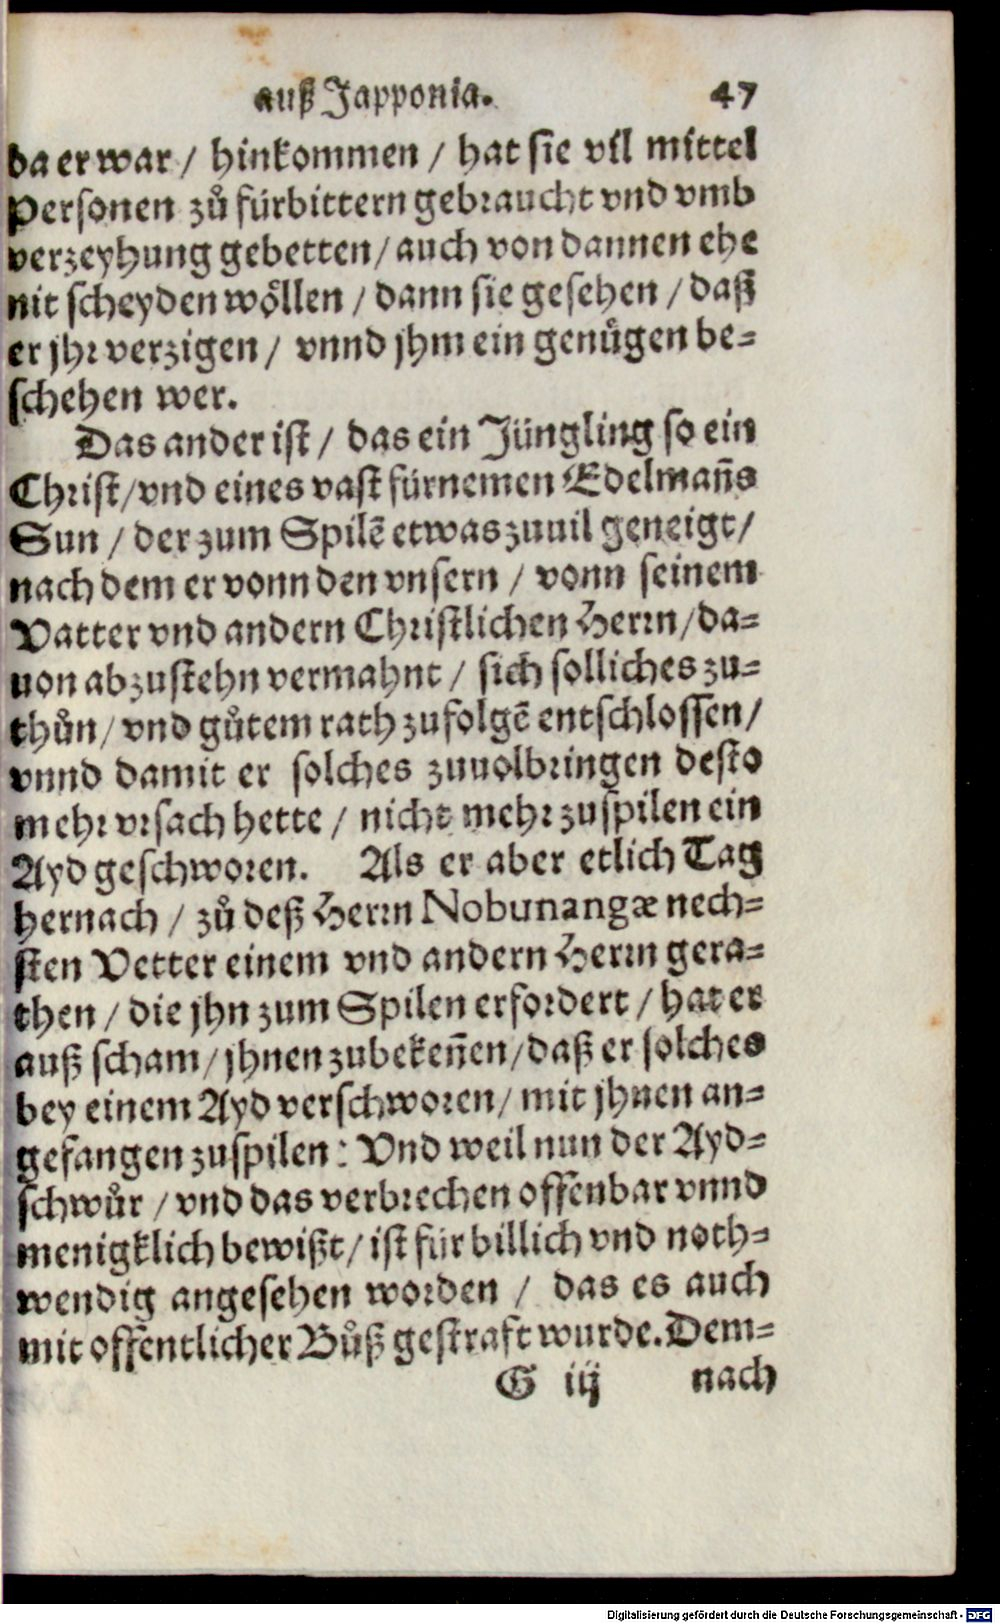 auß Japponia. 47
da er war / hinkommen / hat sie vil mittel
Personen zů fürbittern gebraucht vnd vmb
verzeyhung gebetten / auch von dannen ehe
nit scheyden wöllen / dann sie gesehen / daß
er jhr verzigen / vnnd jhm ein genügen be=
schehen wer.
Das ander ist / das ein Jüngling so ein
Christ / vnd eines vast fürnemen Edelmañs
Sun / der zum Spilē etwas zuuil geneigt /
nach dem er vonn den vnsern / vonn seinem
Vatter vnd andern Christlichen Herrn / da=
uon abzustehn vermahnt / sich solliches zu=
thůn / vnd gůtem rath zufolgē entschlossen /
vnnd damit er solches zuuolbringen desto
mehr vrsach hette / nicht mehr zuspilen ein
Ayd geschworen. Als er aber etlich Tag
hernach / zů deß Herrn Nobunangæ nech=
sten Vetter einem vnd andern Herrn gera=
then / die jhn zum Spilen erfordert / hat er
auß scham / jhnen zubekeñen / daß er solches
bey einem Ayd verschworen / mit jhnen an=
gefangen zuspilen: Vnd weil nun der Ayd=
schwůr / vnd das verbrechen offenbar vnnd
menigklich bewißt / ist für billich vnd noth=
wendig angesehen worden / das es auch
mit offentlicher Bůß gestraft wurde. Dem=
G iij nach
Digitalisierung gefördert durch die Deutsche Forschungsgemeinschaft - DFG